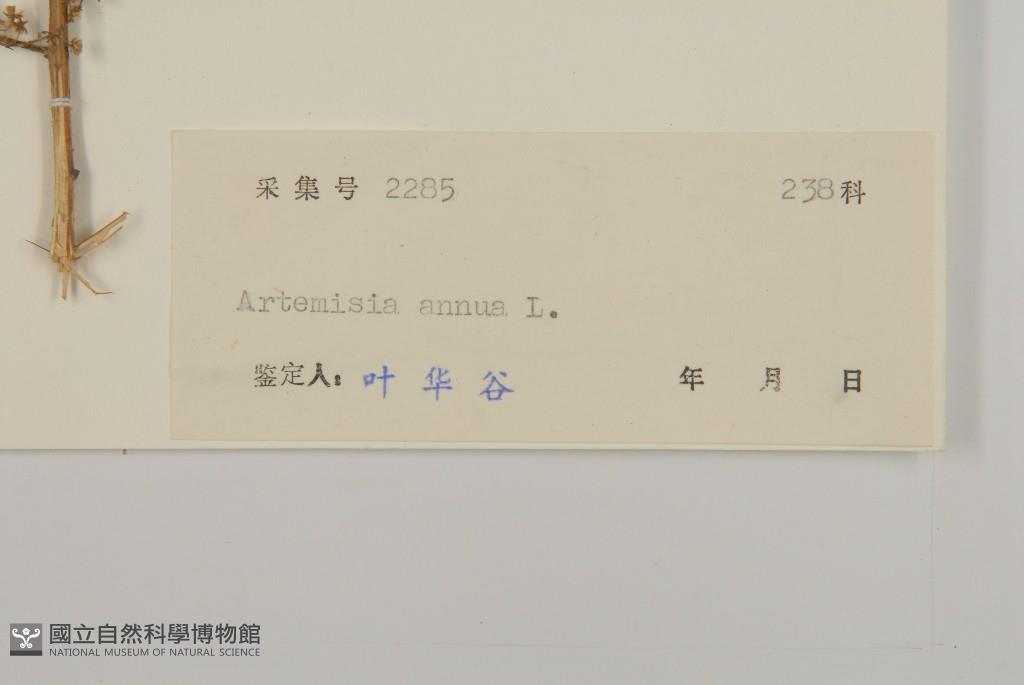 采集号 2285 238科
Artemisia annua L.
鉴定人: 叶华谷 年 月 日
國立自然科學博物館
NATIONAL MUSEUM OF NATURAL SCIENCE